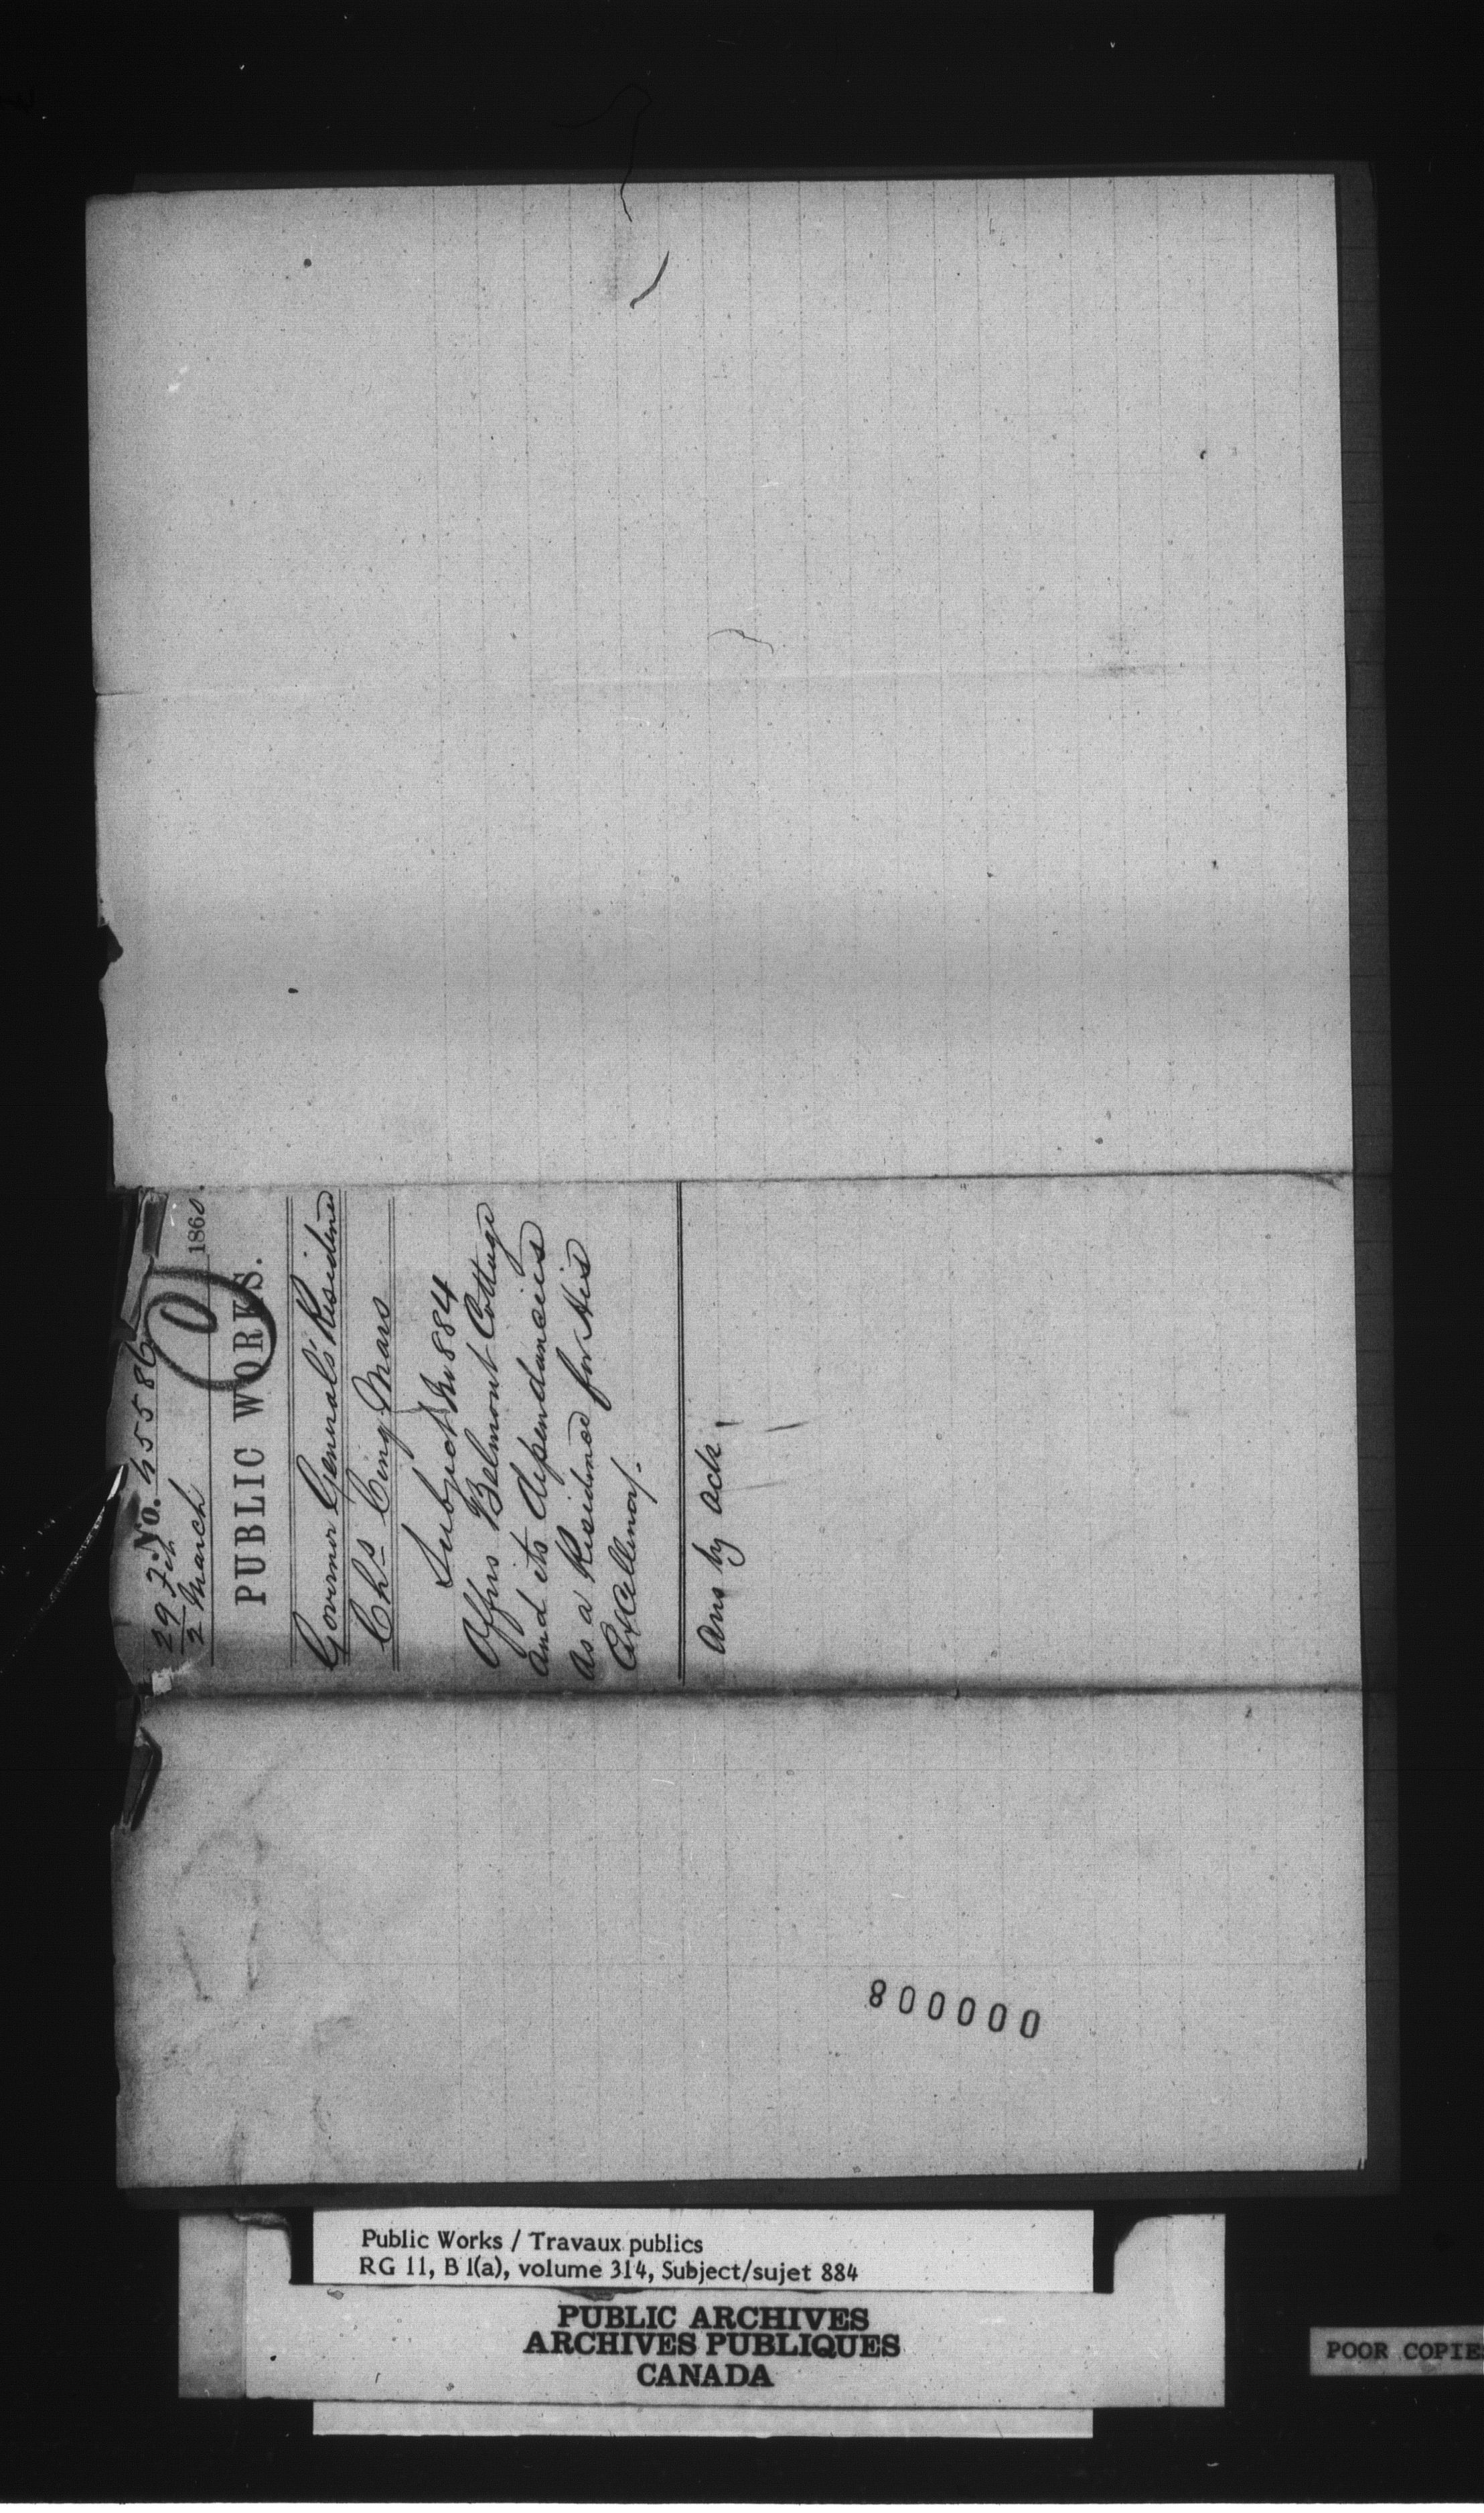 No. 45586
29 Feb
2 March 1860.
PUBLIC WORKS.
Governor General's Residence
Chs Cinq Mars
Subject No 884
Offers Belmont Cottage
and its dependancies
as a Residence for His
Excellency.
Ans by ack
800000
Public Works / Travaux publics
RG 11, B 1(a), volume 314, Subject/sujet 884
PUBLIC ARCHIVES
ARCHIVES PUBLIQUES
CANADA
POOR COPIE